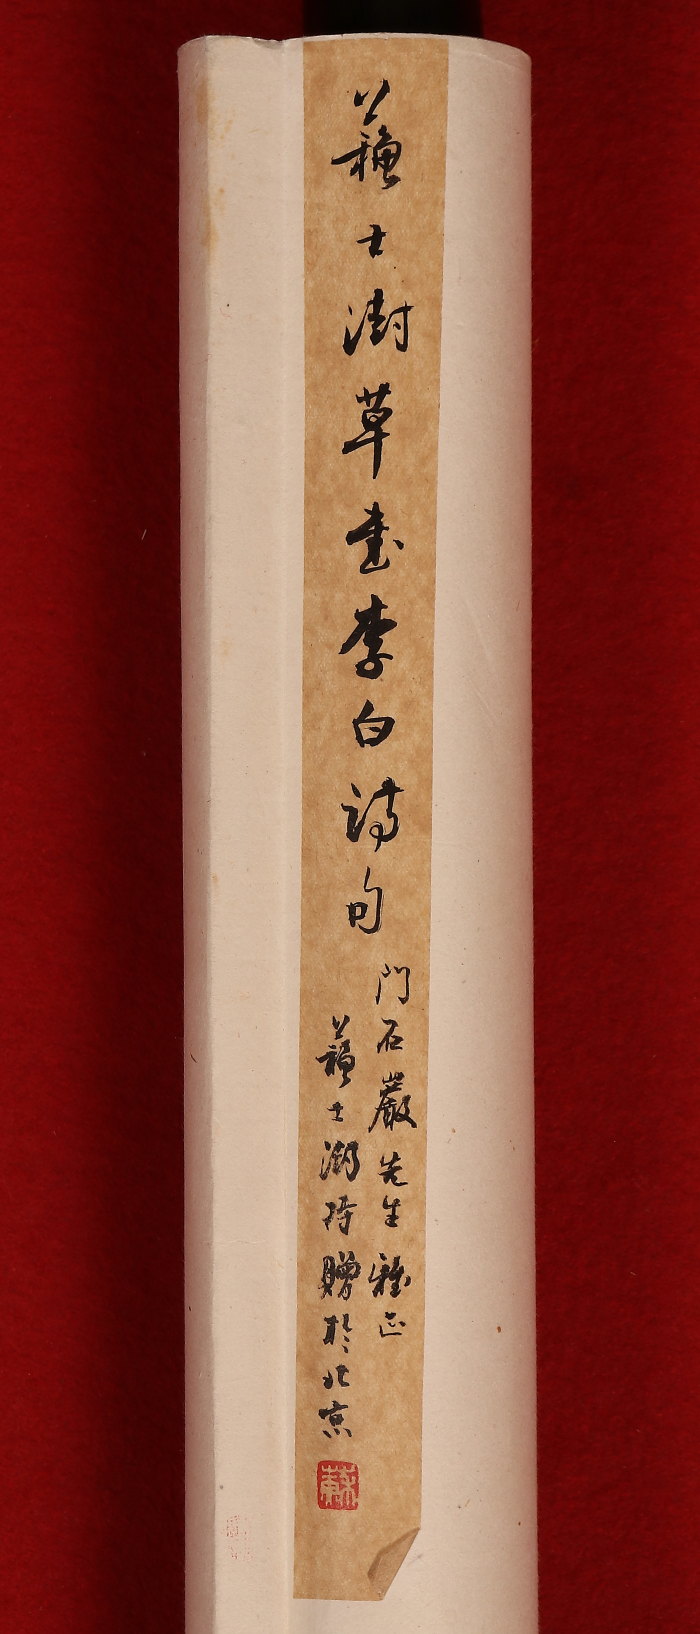 蘇士澍草書李白詩句
門石巖先生雅正
蘇士澍持贈於北京
蘇